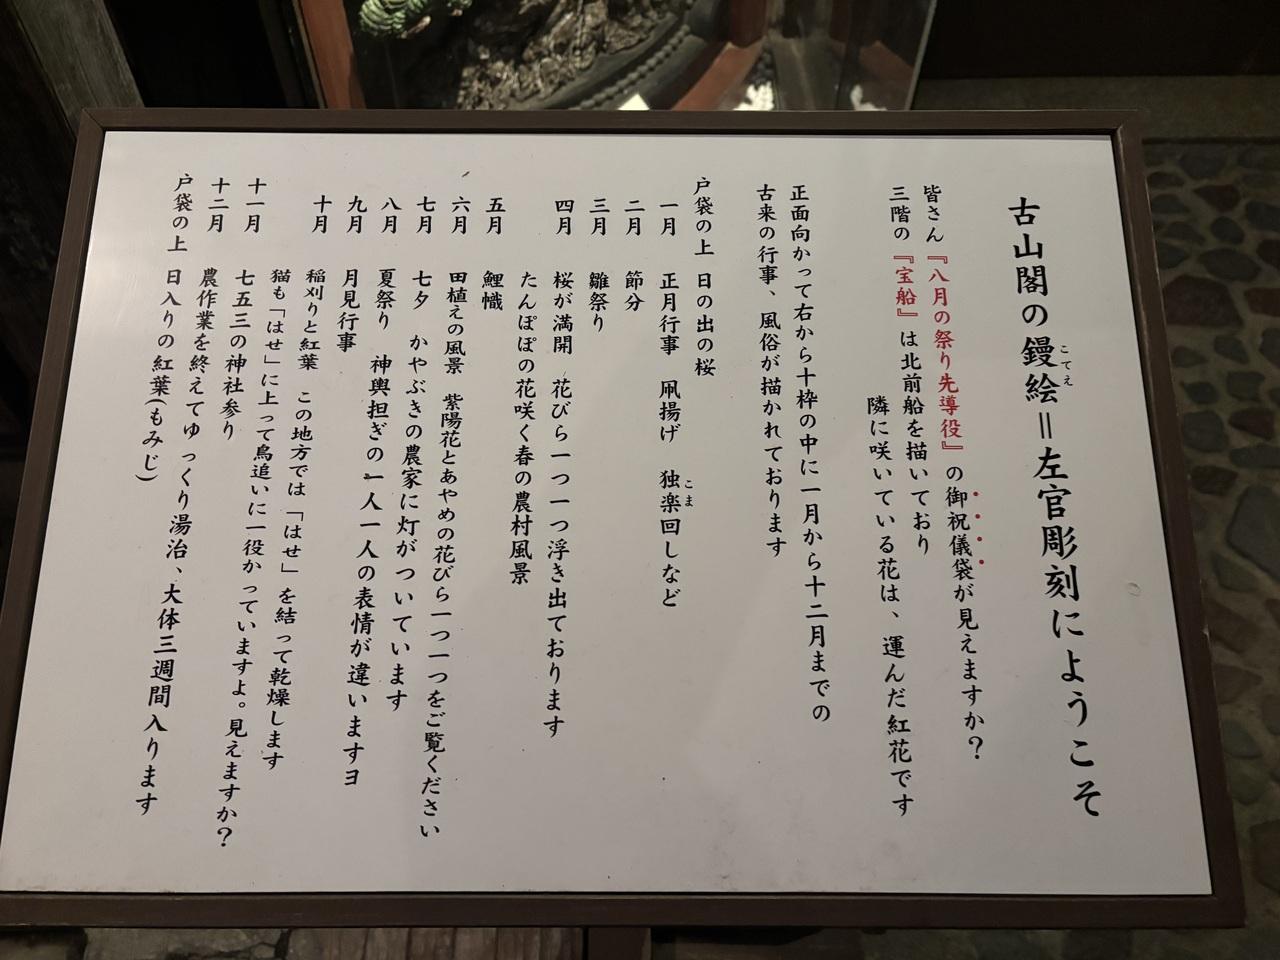 古山閣の鏝絵＝左官彫刻にようこそ
こてえ
皆さん『八月の祭り先導役』の御祝儀袋が見えますか？
三階の『宝船』は北前船を描いており
隣に咲いている花は、運んだ紅花です
正面向かって右から十枠の中に一月から十二月までの
古来の行事、風俗が描かれております
戸袋の上 日の出の桜
一月 正月行事 凧揚げ 独楽回しなど
こま
二月 節分
三月 雛祭り
四月 桜が満開 花びら一つ一つ浮き出ております
たんぽぽの花咲く春の農村風景
五月 鯉幟
六月 田植えの風景 紫陽花とあやめの花びら一つ一つをご覧ください
七月 七夕 かやぶきの農家に灯がついています
八月 夏祭り 神輿担ぎの一人一人の表情が違いますヨ
九月 月見行事
十月 稲刈りと紅葉 この地方では「はせ」を結って乾燥します
猫も「はせ」に上って鳥追いに一役かっていますよ。見えますか？
十一月 七五三の神社参り
十二月 農作業を終えてゆっくり湯治、大体三週間入ります
戸袋の上 日入りの紅葉(もみじ)